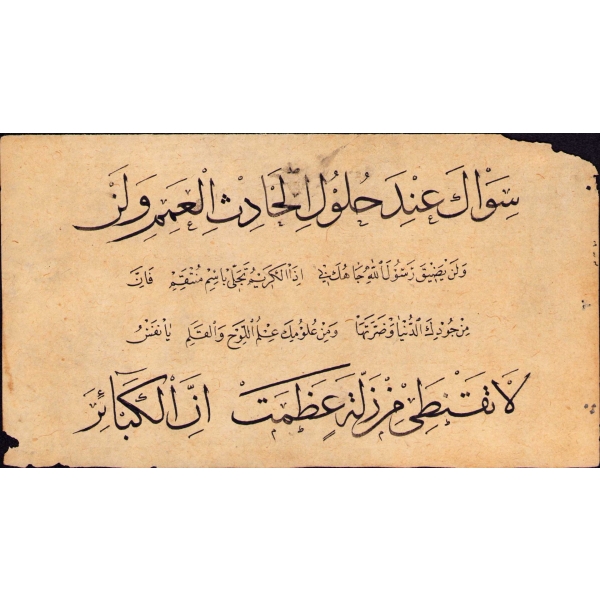 سِوَاكَ عِنْدَ حُلُوْلِ الْحَادِثِ الْعَمِمِ وَلَنْ
وَلَنْ يَضِيْقَ رَسُوْلَ اللهِ جَاهُكَ بِي اِذَا الْكَرِيْمُ تَجَلّٰى بِاسْمِ مُنْتَقِمٖ فَاِنَّ
مِنْ جُوْدِكَ الدُّنْيَا وَضَرَّتَهَا وَمِنْ عُلُوْمِكَ عِلْمَ اللَّوْحِ وَالْقَلَمِ يَا نَفْسُ
لَا تَقْنَطِي مِنْ زَلَّةٍ عَظُمَتْ اِنَّ الْكَبَائِرَ